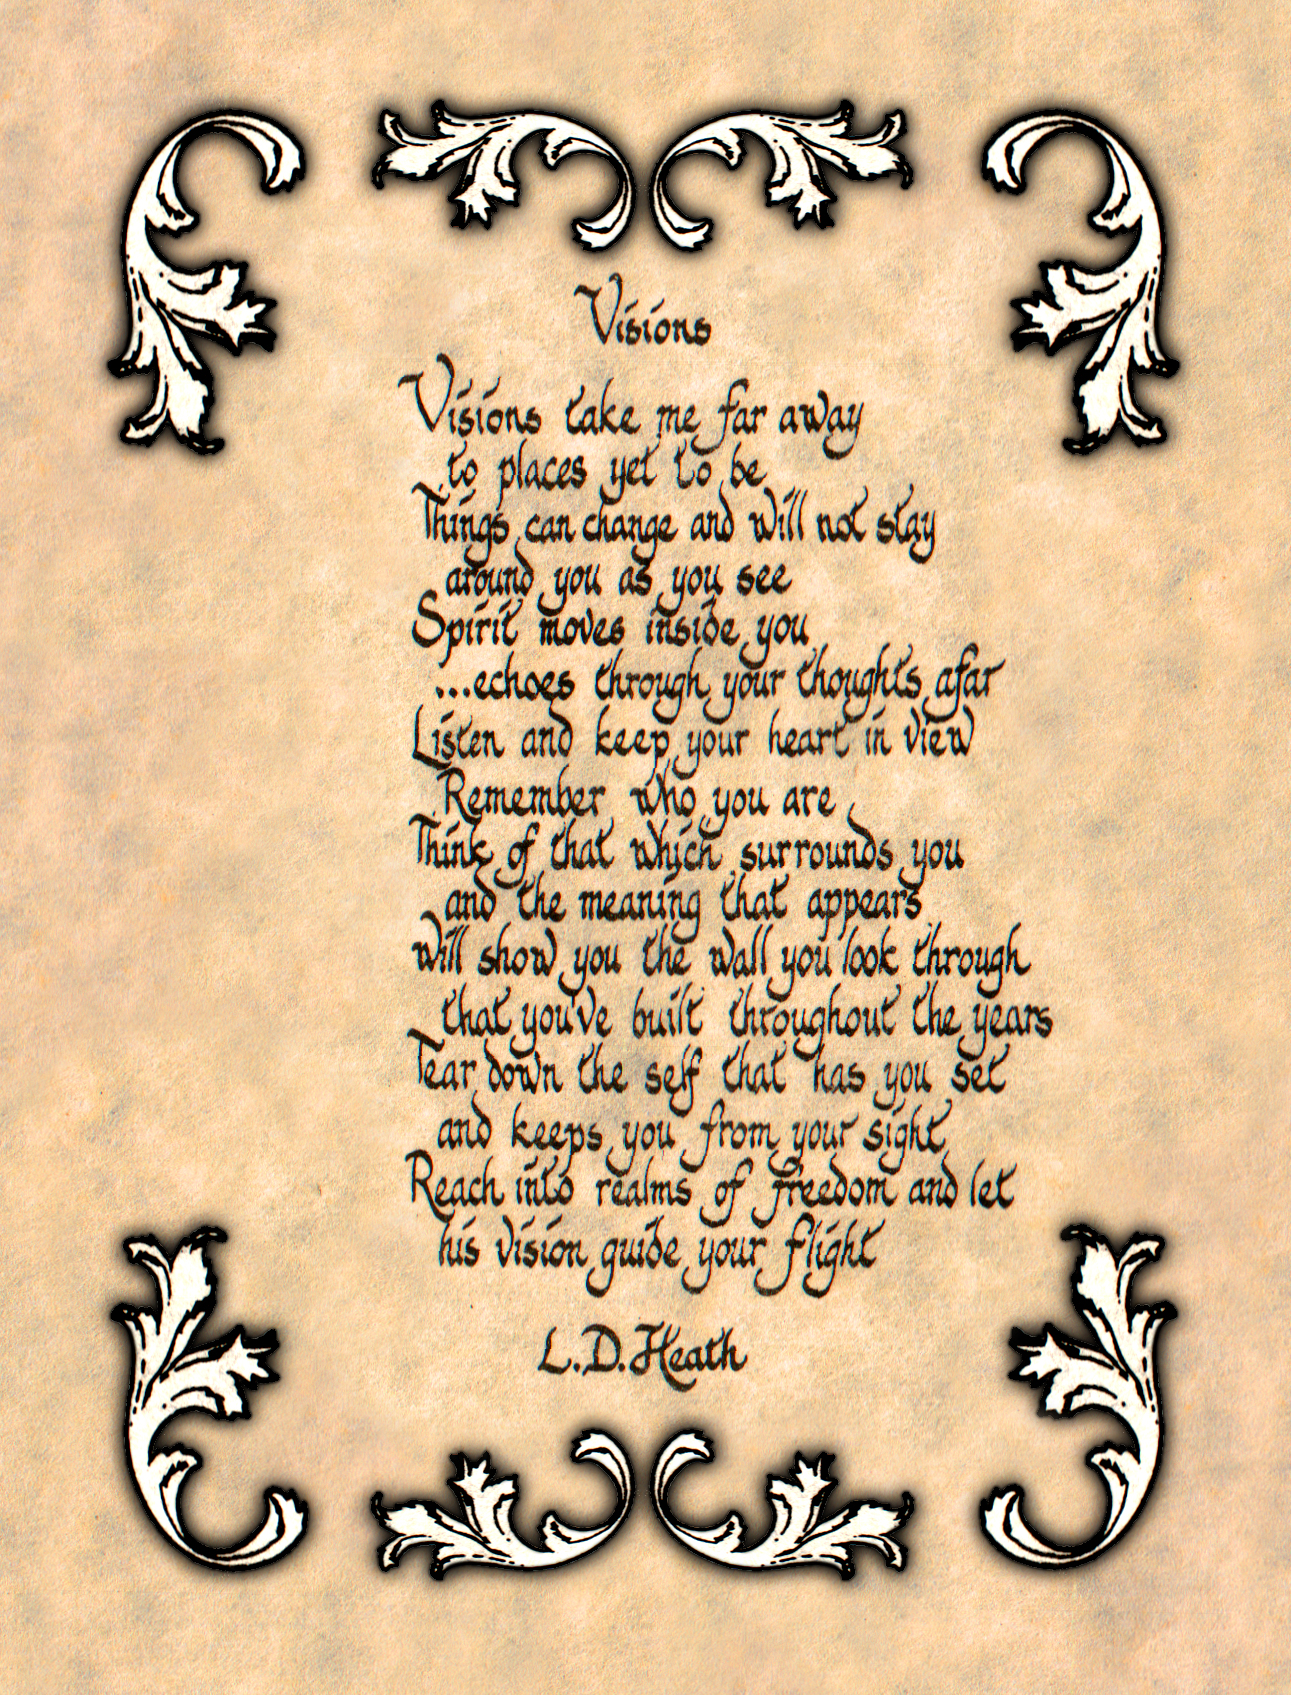 Visions
Visions take me far away
to places yet to be
Things can change and will not stay
around you as you see
Spirit moves inside you
...echoes through your thoughts afar
Listen and keep your heart in view
Remember who you are
Think of that which surrounds you
and the meaning that appears
will show you the wall you look through
that you've built throughout the years
Tear down the self that has you set
and keeps you from your sight
Reach into realms of freedom and let
his vision guide your flight
L.D.Heath